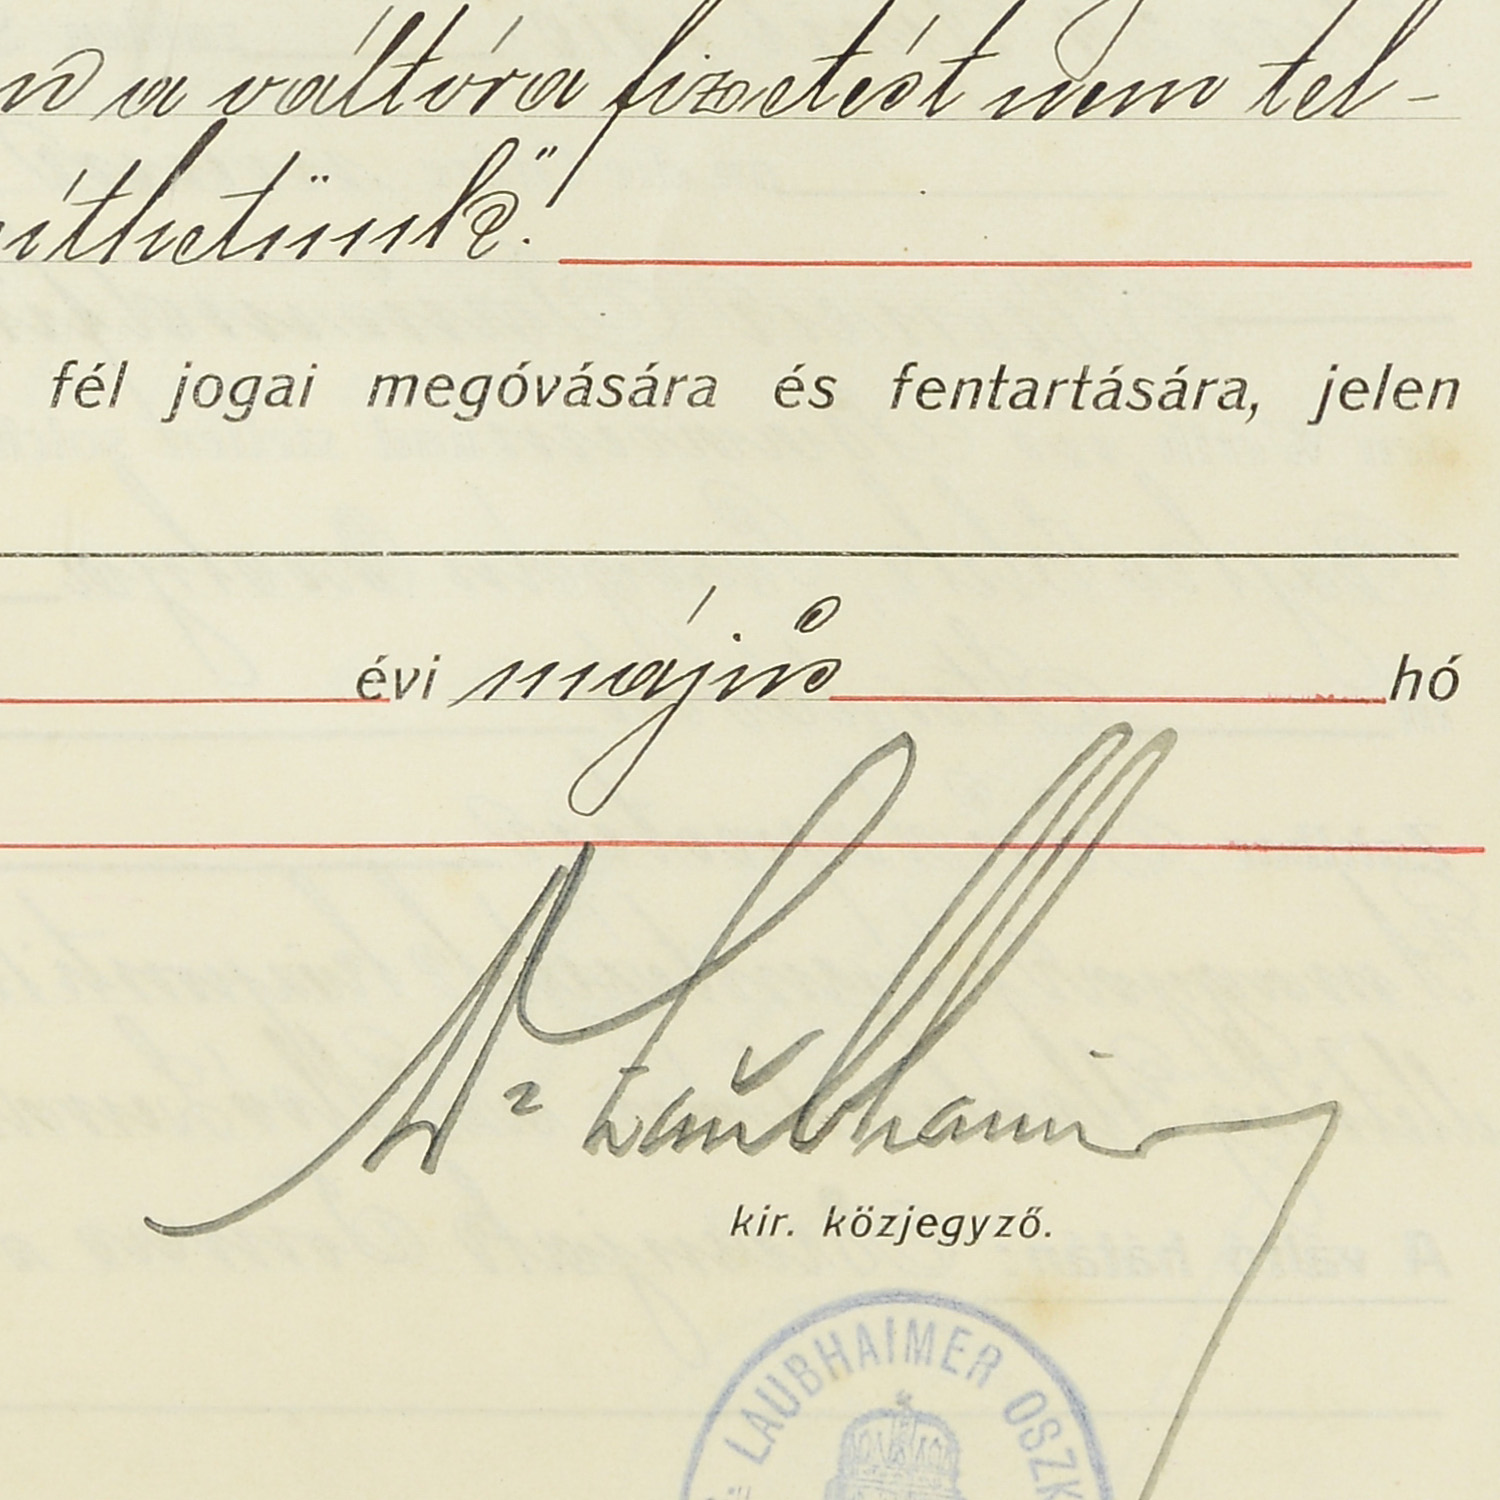 n a váltóra fizetést nem tel-
íthetünk".
fél jogai megóvására és fentartására, jelen
évi május hó
Dr Laubhaimer
kir. közjegyző.
LAUBHAIMER OSZK